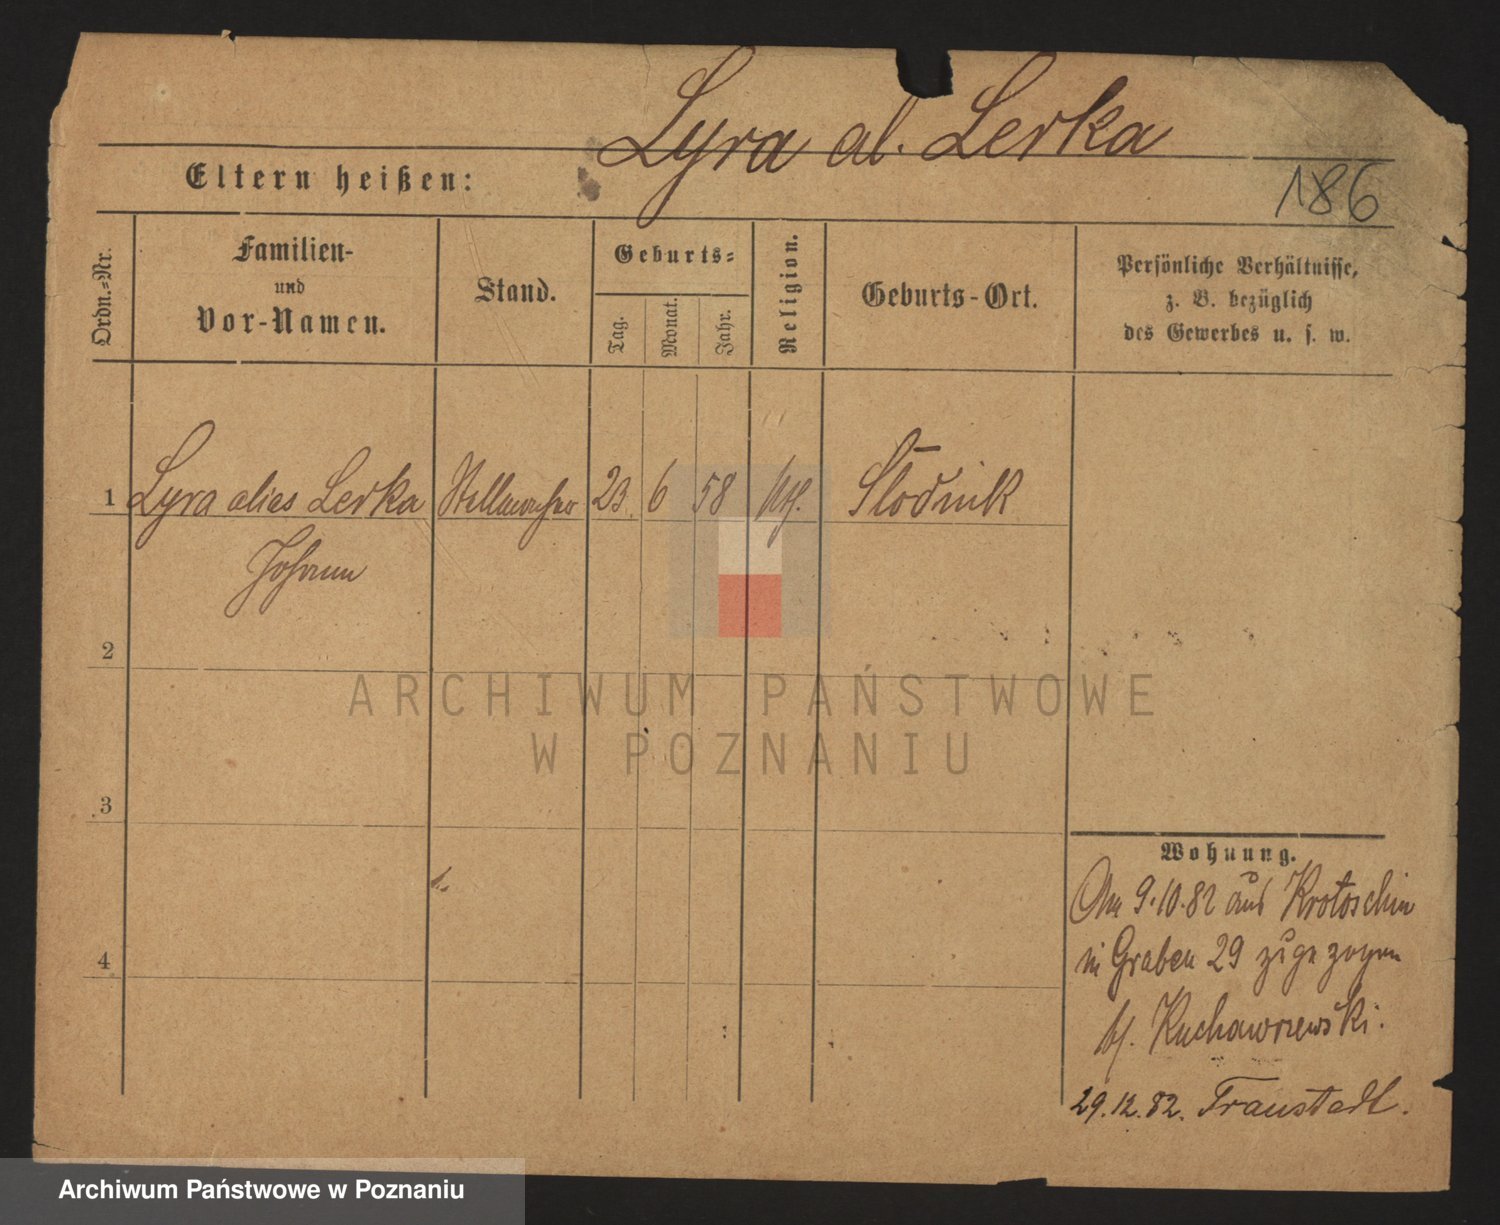 Lyra al. Lerka
Eltern heißen:
186
Ordn.-Nr.
Familien-
und
Vor-Namen.
Stand.
Geburts-
Tag.
Monat.
Jahr.
Religion.
Geburts-Ort.
Persönliche Verhältnisse,
z. B. bezüglich
des Gewerbes u. s. w.
1 Lyra alias Lerka Stellmacher 23 6 58 kth. Slodnik
Johann
2
3
4
Wohnung.
Am 9.10.82 aus Krotoschin
in Graben 29 zugezogen
bf. Kuchawrzewski.
29.12.82. Fraustadt.
ARCHIWUM PAŃSTWOWE
W POZNANIU
Archiwum Państwowe w Poznaniu